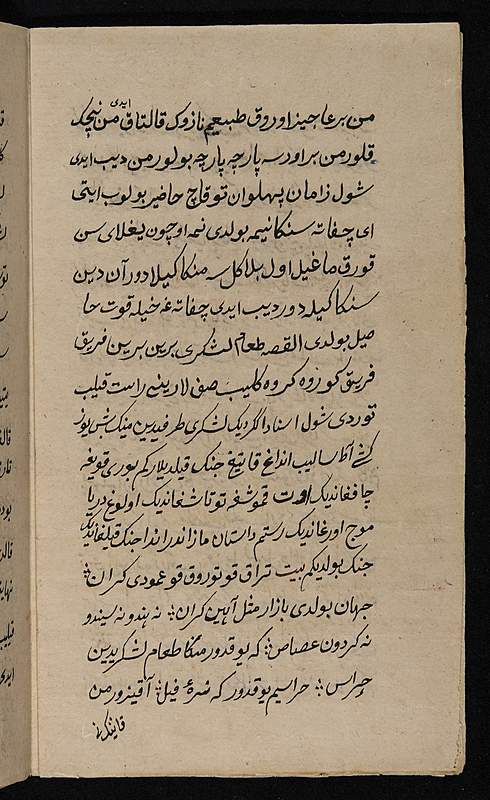 من بر عاجیز اوروق طبیعیم نازوک قالتاق ایدی من نیچک
قلورمن بر اورسه پارچه پارچه بولورمن دیب ایدی
شول زامان پهلوان توقاچ حاضیر بولوب ایتی
ای چفاته سنکا نیمه بولدی نمه اوچون یغلای سن
قورقماغیل اول بلا کلسه منکا کیلادور آن دین
سنکا کیله دور دیب ایدی چفاته غه خیله قوت حا
صیل بولدی القصه طعام لشکری برین برین فریق
فریق کوزوه کروه کلیب صفی لارینی راست قیلیب
توردی شول اسنادا لشکری طرفیدین مینک شش یوز
کشی آط سالیب اندانغ قاتیغ جنک قیلدیلارکم بوری قویغه
چافغاندیک اوت قموشغه توتاشغاندیک اولوغ دریا
موج اورغاندیک رستم داستان مازاندراندا جنک قیلغاندیک
جنک بولدیکم بیت تراق قوتوروق قو عمودی کران
جهان بولدی بازار مثل آهن کران نه هندو نه سیندو
نه کردون عصاص که یوقدور منکا طعام لشکریدین
حراس حراسیم یوقدور که نعرهٔ فیل آقیزورمن